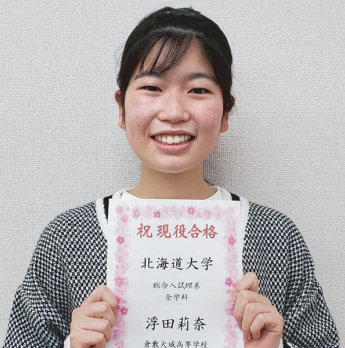 祝 現役合格
北海道大学
総合入試理系
全学科
浮田莉奈
倉敷天城高等学校